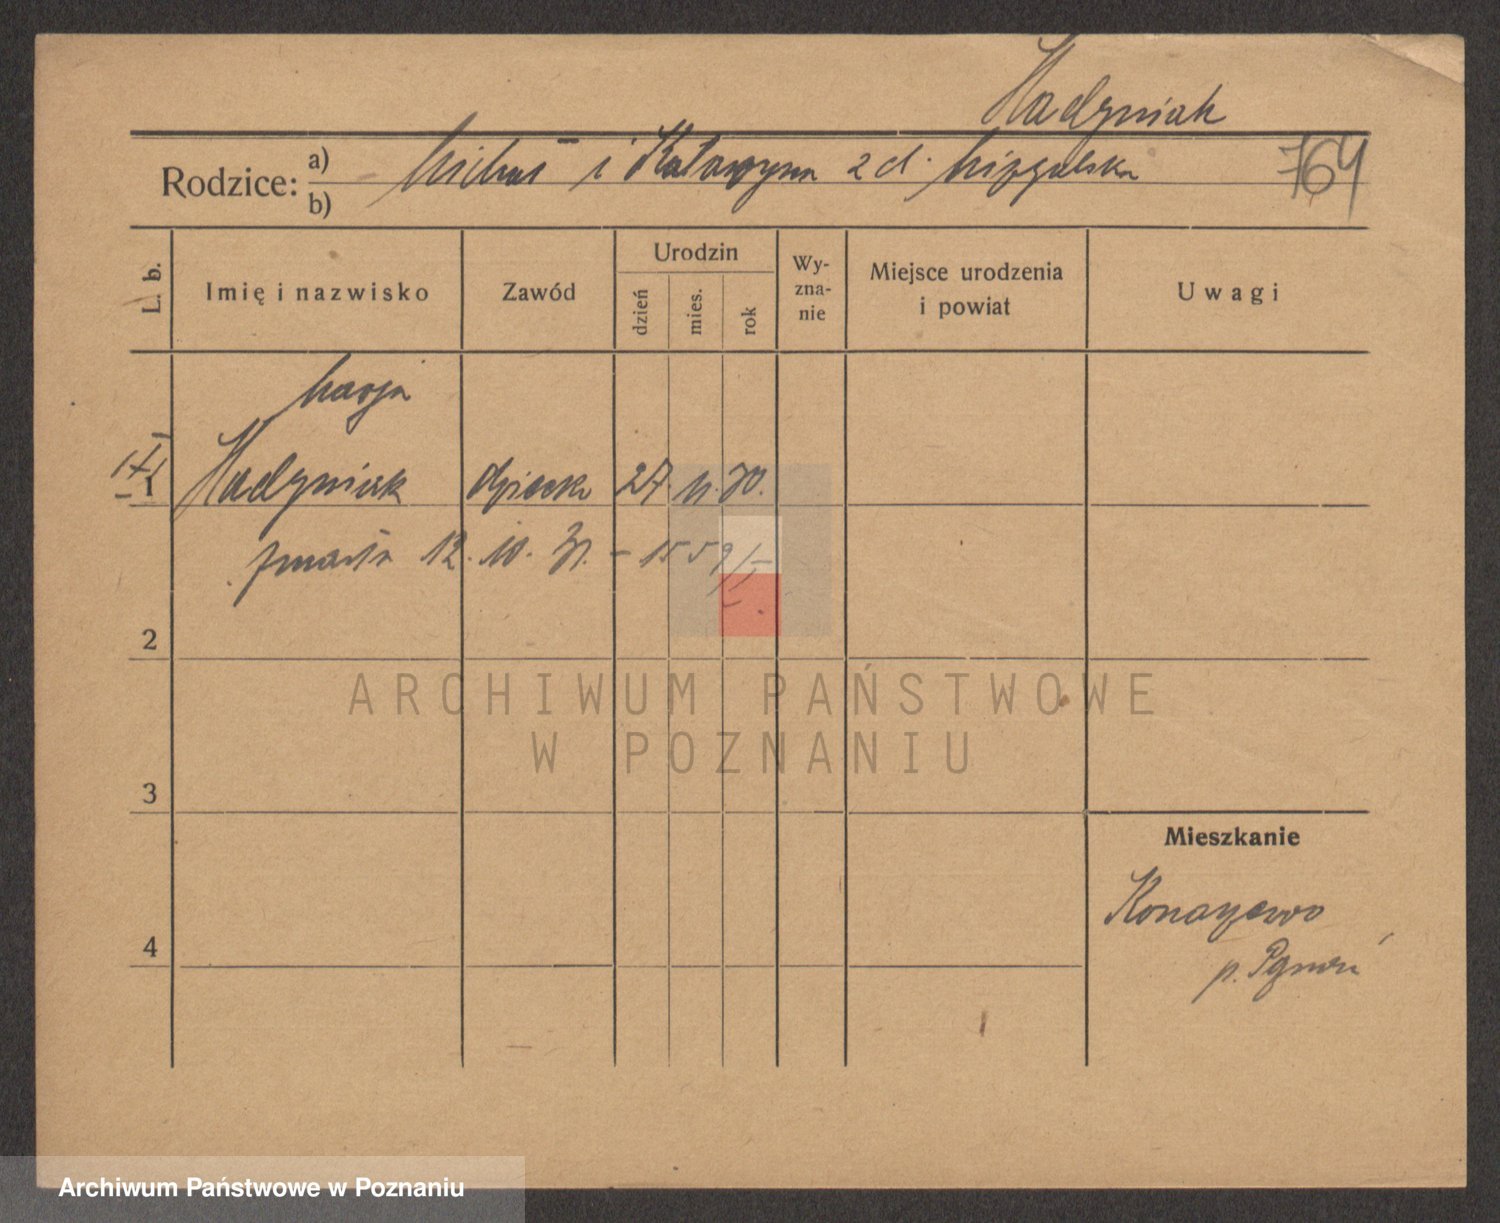 Hadyniak
Rodzice: a) i Katarzyna z d. 764
b)
L. b. Imię i nazwisko Zawód Urodzin dzień mies. rok Wy-zna-nie Miejsce urodzenia i powiat Uwagi
Marja
1 Hadyniak dziecko 27. 11. 30.
zmarła 12. 10. 31. - 1559/I
2
ARCHIWUM PAŃSTWOWE
W POZNANIU
3
Mieszkanie
Konarzewo
4
p. Poznań
Archiwum Państwowe w Poznaniu